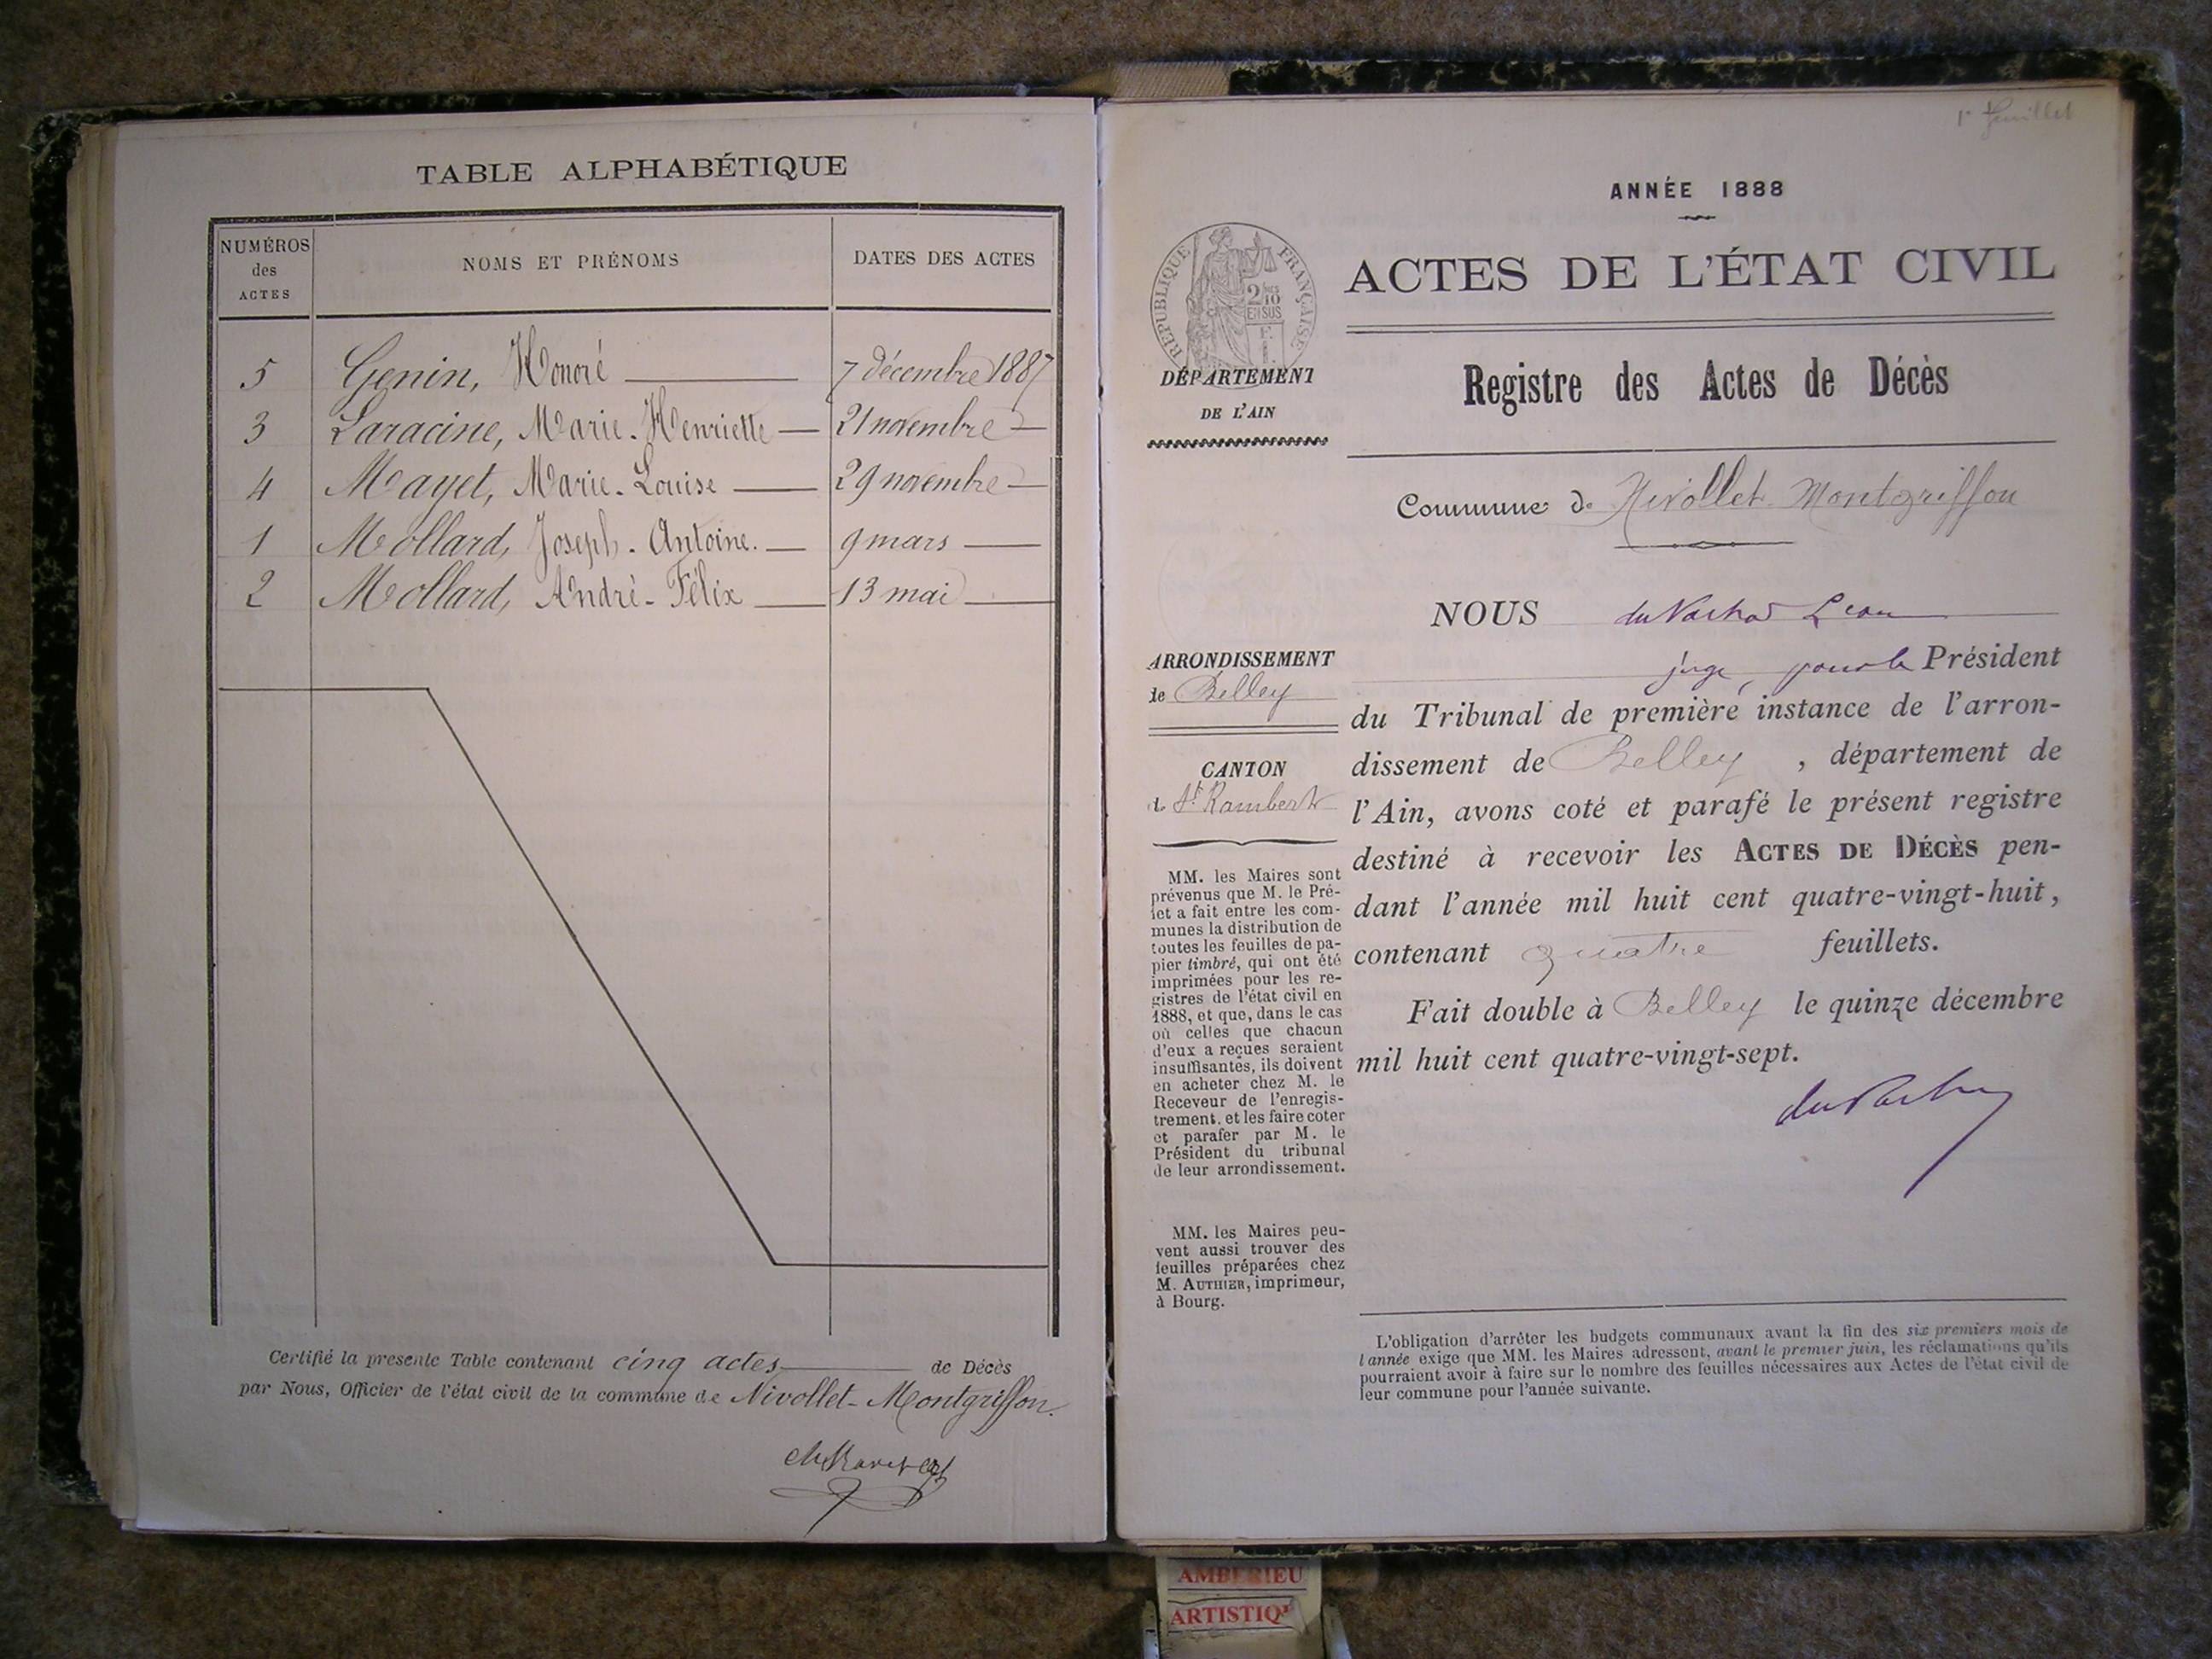 TABLE ALPHABÉTIQUE
NUMÉROS des ACTES
NOMS ET PRÉNOMS
DATES DES ACTES
5 Genin, Honoré 7 décembre 1887
3 Laracine, Marie-Henriette 21 novembre
4 Mayet, Marie-Louise 29 novembre
1 Mollard, Joseph-Antoine. 9 mars
2 Mollard, André-Félix 13 mai
Certifié la présente Table contenant cinq actes de Décès
par Nous, Officier de l'état civil de la commune de Nivollet-Montgriffon.
1er feuillet
ANNÉE 1888
RÉPUBLIQUE FRANÇAISE
2/10
EN SUS
ACTES DE L'ÉTAT CIVIL
DÉPARTEMENT
DE L'AIN
Registre des Actes de Décès
Commune de Nivollet-Montgriffon
NOUS Léon
juge, pour le Président
du Tribunal de première instance de l'arron-
dissement de Belley, département de
l'Ain, avons coté et parafé le présent registre
destiné à recevoir les ACTES DE DÉCÈS pen-
dant l'année mil huit cent quatre-vingt-huit,
contenant quatre feuillets.
Fait double à Belley le quinze décembre
mil huit cent quatre-vingt-sept.
ARRONDISSEMENT
de Belley
CANTON
de St Rambert
MM. les Maires sont
prévenus que M. le Pré-
fet a fait entre les com-
munes la distribution de
toutes les feuilles de pa-
pier timbré, qui ont été
imprimées pour les re-
gistres de l'état civil en
1888, et que, dans le cas
où celles que chacun
d'eux a reçues seraient
insuffisantes, ils doivent
en acheter chez M. le
Receveur de l'enregis-
trement. et les faire coter
et parafer par M. le
Président du tribunal
de leur arrondissement.
MM. les Maires peu-
vent aussi trouver des
feuilles préparées chez
M. AUTHIER, imprimeur,
à Bourg.
L'obligation d'arrêter les budgets communaux avant la fin des six premiers mois de
l'année exige que MM. les Maires adressent, avant le premier juin, les réclamations qu'ils
pourraient avoir à faire sur le nombre des feuilles nécessaires aux Actes de l'état civil de
leur commune pour l'année suivante.
AMBERIEU
ARTISTIQ